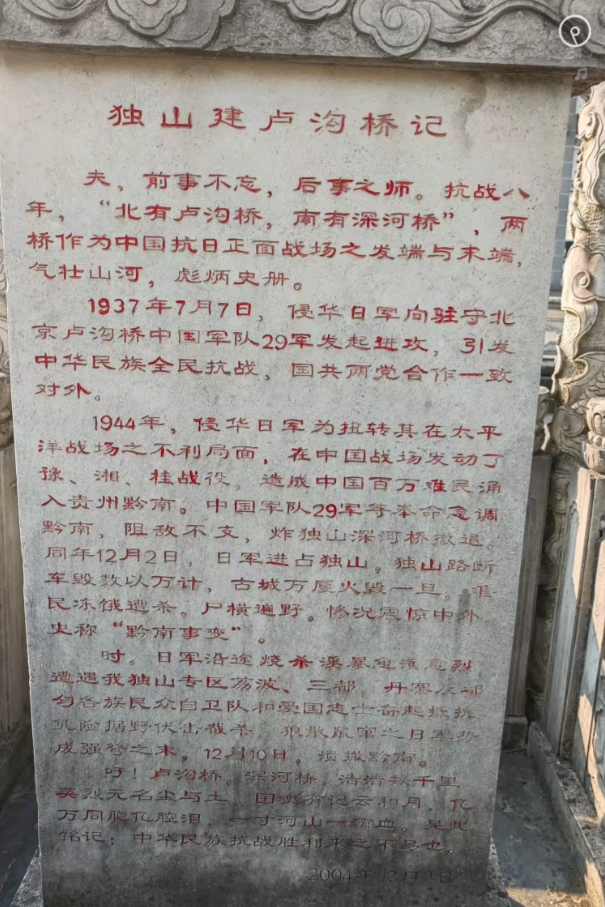 独山建卢沟桥记
夫，前事不忘，后事之师。抗战八
年，“北有卢沟桥，南有深河桥”，两
桥作为中国抗日正面战场之发端与末端，
气壮山河，彪炳史册。
1937年7月7日，侵华日军向驻守北
京卢沟桥中国军队29军发起进攻，引发
中华民族全民抗战，国共两党合作一致
对外。
1944年，侵华日军为扭转其在太平
洋战场之不利局面，在中国战场发动了
豫、湘、桂战役，造成中国百万难民涌
入贵州黔南。中国军队29军等奉命急调
黔南，阻敌不支，炸独山深河桥撤退。
同年12月2日，日军进占独山。独山路断
车毁数以万计，古城万厦火毁一旦，难
民冻饿遭杀。尸横遍野。惨况震惊中外
史称“黔南事变”。
时。日军沿途烧杀
遭遇我独山专区荔波、三都、丹寨及都
匀各族民众自卫队和爱国志士奋起抵抗
险据野伏击截杀 之日军
成强弩之末，12月10日，溃撤黔南。
吁！卢沟桥。深河桥 浩浩 千里
英烈无名尘与土 国 月 亿
万同胞亿腔泪，一寸河山一 血。吴此
铭记：中华民族抗战胜利来之不易也。
2004年12月2日